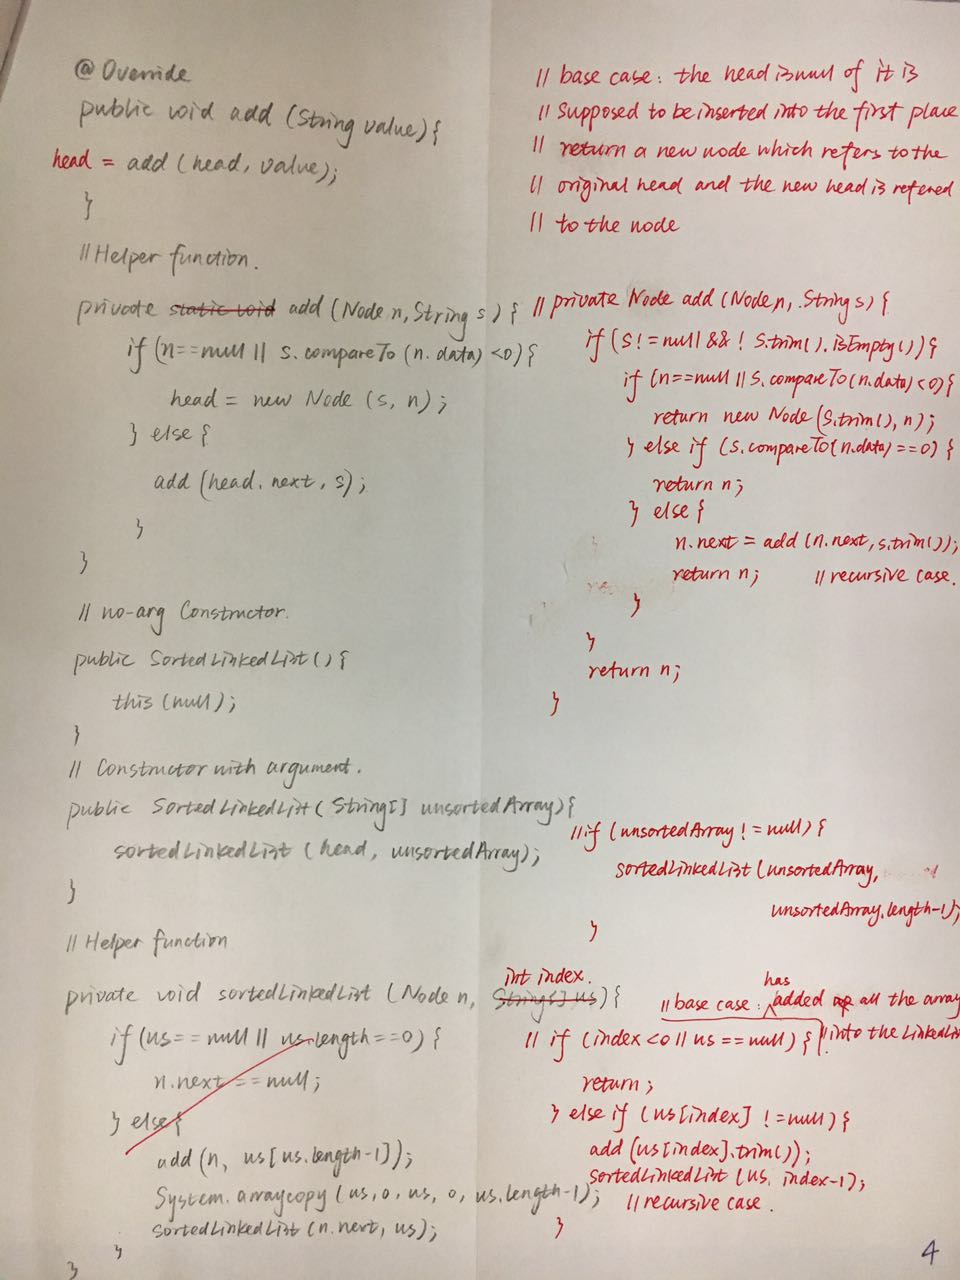 @Override
public void add (String value){
head = add (head, value);
}
// Helper function.
private static void add (Node n, String s) {
if (n==null || s.compareTo (n.data) <0) {
head = new Node (s, n);
} else {
add (head.next, s);
}
}
// no-arg Constructor.
public SortedLinkedList () {
this (null);
}
// Constructor with argument.
public SortedLinkedList (String[] unsortedArray) {
sortedLinkedList (head, unsortedArray);
}
// Helper function
private void sortedLinkedList (Node n, String[] us) {
int index.
if (us == null || us.length==0) {
n.next == null;
} else {
add (n, us[us.length-1]);
System.arraycopy (us, 0, us, 0, us.length-1);
sortedLinkedList (n.next, us);
}
}
// base case: the head is null of it is
// supposed to be inserted into the first place
// return a new node which refers to the
// original head and the new head is refered
// to the node
// private Node add (Node n, String s) {
if (s != null && ! s.trim().isEmpty()) {
if (n==null || s.compareTo(n.data) <0) {
return new Node (s.trim(), n);
} else if (s.compareTo(n.data) ==0) {
return n;
} else {
n.next = add (n.next, s.trim());
return n; // recursive case.
}
}
return n;
}
// if (unsortedArray != null) {
sortedLinkedList (unsortedArray,
unsortedArray.length-1);
}
has
// base case: added all the array
// into the LinkedLis
// if (index <0 || us == null) {
return ;
} else if (us[index] != null) {
add (us[index].trim());
sortedLinkedList (us, index-1);
// recursive case.
}
4